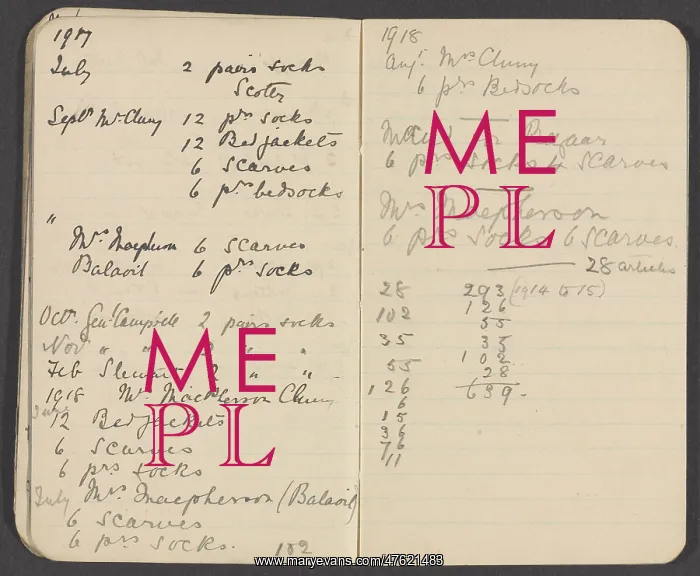 1917
July 2 pairs socks
Scoter
Septr McCluny 12 prs socks
12 Bedjackets
6 Scarves
6 prs bedsocks
"
Mrs Macpherson 6 scarves
Balavil 6 prs socks
Octr. Genl Campbell 2 pairs socks
Nov " " 2 " "
Feb 2 " "
1918 MacPherson Cluny
June
12 Bedjackets
6 Scarves
6 prs socks
July Mrs Macpherson (Balavil)
6 Scarves
6 prs socks. 102
1918
Augt. Mrs Cluny
6 prs Bedsocks
Bazaar
6 prs socks 4 scarves
Mrs Macpherson
6 prs socks 6 scarves.
28 articles
28 293 (1914 to 15)
102 126
55
35 35
102
55 28
126 639.
6
15
36
76
11
ME
PL
ME
PL
www.maryevans.com/47621483